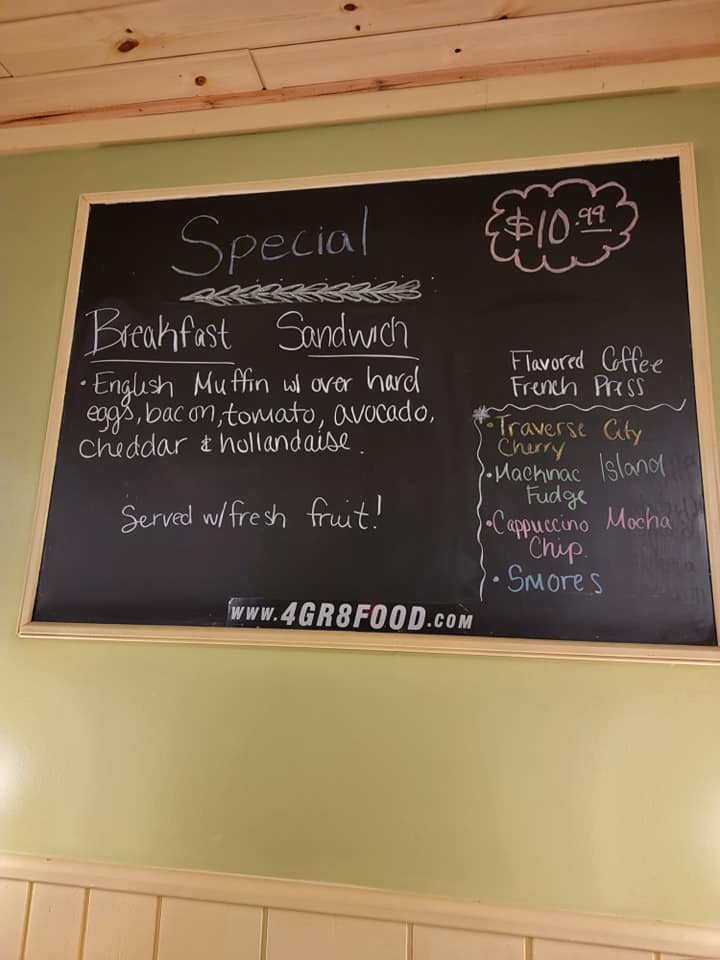 Special
$10.99
Breakfast Sandwich
• English Muffin w/ over hard
eggs, bacon, tomato, avocado,
cheddar & hollandaise.
Served w/ fresh fruit!
Flavored Coffee
French Press
• Traverse City
Cherry
• Mackinac Island
Fudge
• Cappuccino Mocha
Chip.
• Smores
www.4GR8FOOD.com